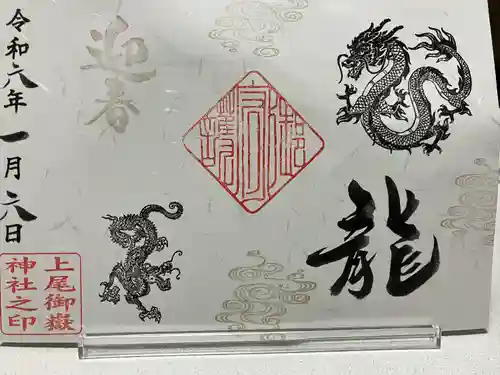 令和六年一月六日
迎春
龍
上尾御嶽
神社之印